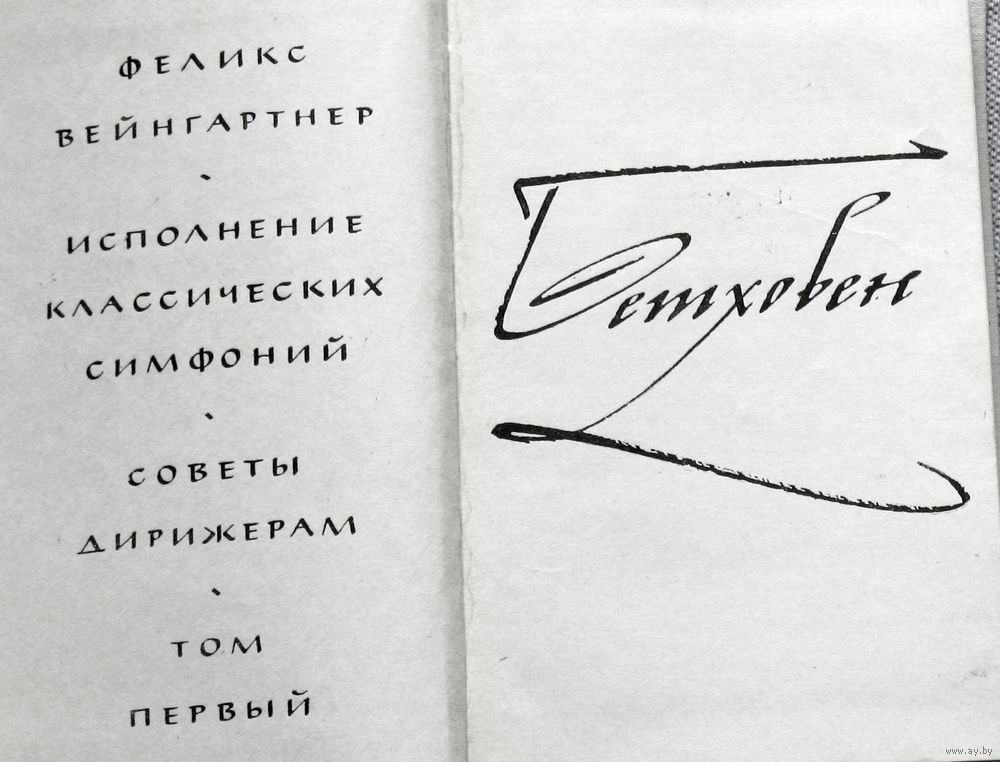 ФЕЛИКС
ВЕЙНГАРТНЕР
ИСПОЛНЕНИЕ
КЛАССИЧЕСКИХ
СИМФОНИЙ
СОВЕТЫ
ДИРИЖЕРАМ
ТОМ
ПЕРВЫЙ
Бетховен
www.ay.by